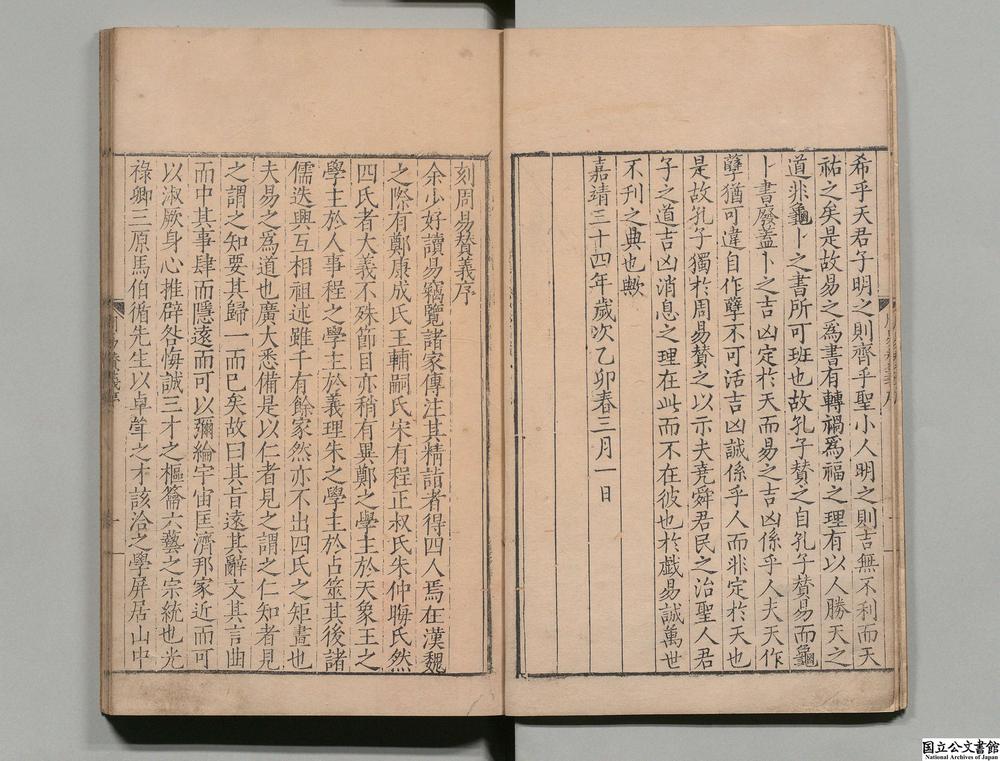 希乎天君子明之則齊乎聖小人明之則吉無不利而天
祐之矣是故易之為書有轉禍為福之理有以人勝天之
道非龜卜之書所可班也故孔子賛之自孔子賛易而龜
卜書廢蓋卜之吉凶定於天而易之吉凶係乎人夫天作
孽猶可違自作孽不可活吉凶誠係乎人而非定於天也
是故孔子獨於周易賛之以示夫堯舜君民之治聖人君
子之道吉凶消息之理在此而不在彼也於戯易誠萬世
不刋之典也歟
嘉靖三十四年歲次乙卯春三月一日
刻周易賛義序
余少好讀易竊覽諸家傳注其精詣者得四人焉在漢魏
之際有鄭康成氏王輔嗣氏宋有程正叔氏朱仲晦氏然
四氏者大義不殊節目亦稍有異鄭之學主於天象王之
學主於人事程之學主於義理朱之學主於占筮其後諸
儒迭興互相祖述雖千有餘家然亦不出四氏之矩畫也
夫易之為道也廣大悉備是以仁者見之謂之仁知者見
之謂之知要其歸一而已矣故曰其旨遠其辭文其言曲
而中其事肆而隱遠而可以彌綸宇宙匡濟邦家近而可
以淑厥身心推辟咎悔誠三才之樞籥六藝之宗統也光
祿卿三原馬伯循先生以卓犖之才該洽之學屏居山中
周易賛義序
一
国立公文書館
National Archives of Japan